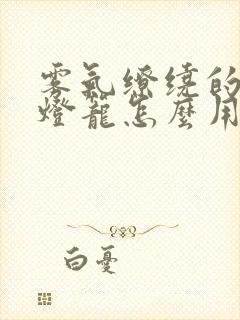 雾氣繚绕的
燈籠怎麼用
白憂